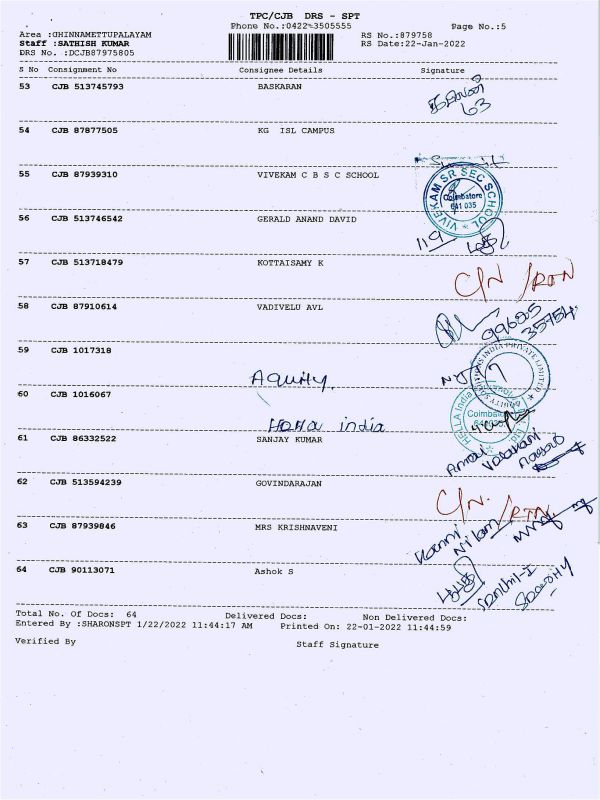 TPC/CJB DRS - SPT
Phone No.:0422-3505555
Page No.:5
Area :GHINNAMETTUPALAYAM
Staff :SATHISH KUMAR
DRS No. :DCJB87975805
RS No.:879758
RS Date:22-Jan-2022
S No Consignment No Consignee Details Signature
53 CJB 513745793 BASKARAN
63
54 CJB 87877505 KG ISL CAMPUS
55 CJB 87939310 VIVEKAM C B S C SCHOOL
VIVEKAM SR SEC SCHOOL
Coimbatore
641 035
56 CJB 513746542 GERALD ANAND DAVID
119
57 CJB 513718479 KOTTAISAMY K
C/N /RTN
58 CJB 87910614 VADIVELU AVL
99625
35754
59 CJB 1017318 Aquity
INDIA PRIVATE LIMITED
60 CJB 1016067 Hella india
HELLA India
Coimbatore
61 CJB 86332522 SANJAY KUMAR
62 CJB 513594239 GOVINDARAJAN
C/N. /RTN.
63 CJB 87939846 MRS KRISHNAVENI
64 CJB 90113071 Ashok S
Total No. Of Docs: 64 Delivered Docs: Non Delivered Docs:
Entered By :SHARONSPT 1/22/2022 11:44:17 AM Printed On: 22-01-2022 11:44:59
Verified By Staff Signature